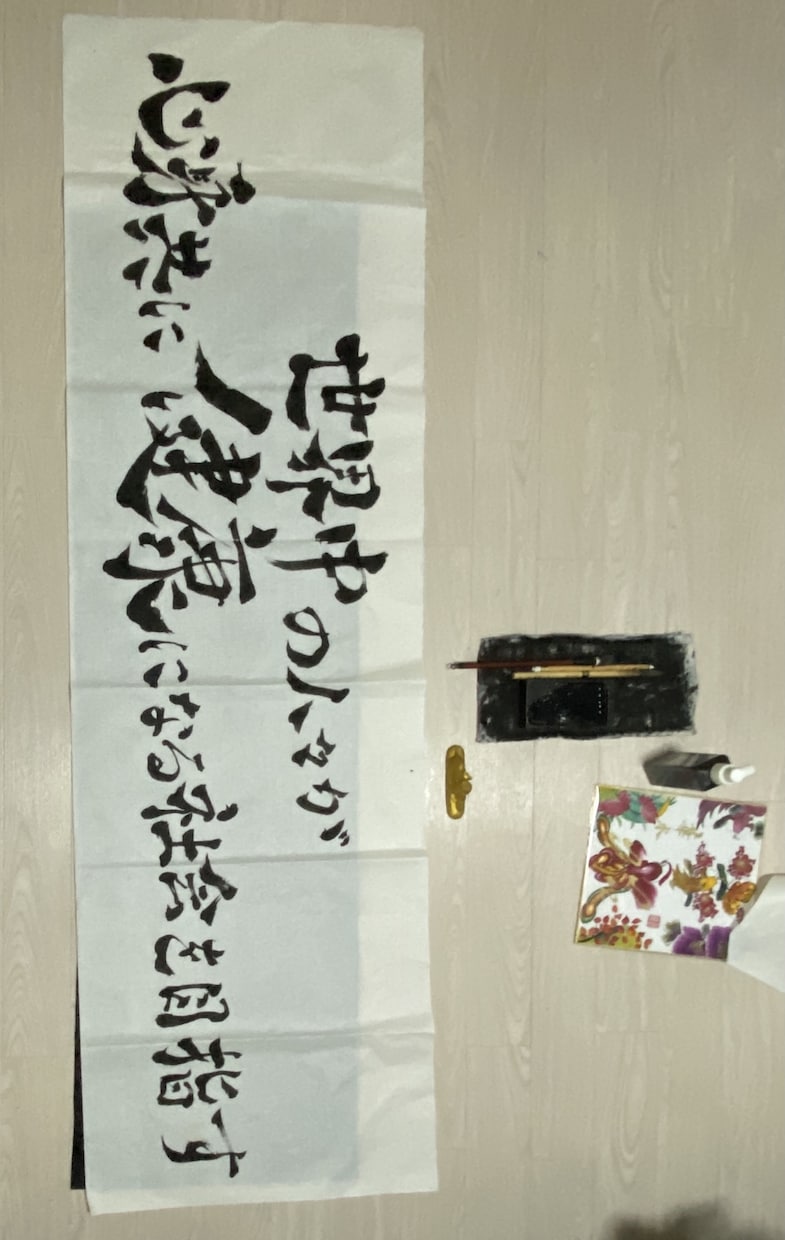 世界中の人々が
心身共に健康になる社会を目指す